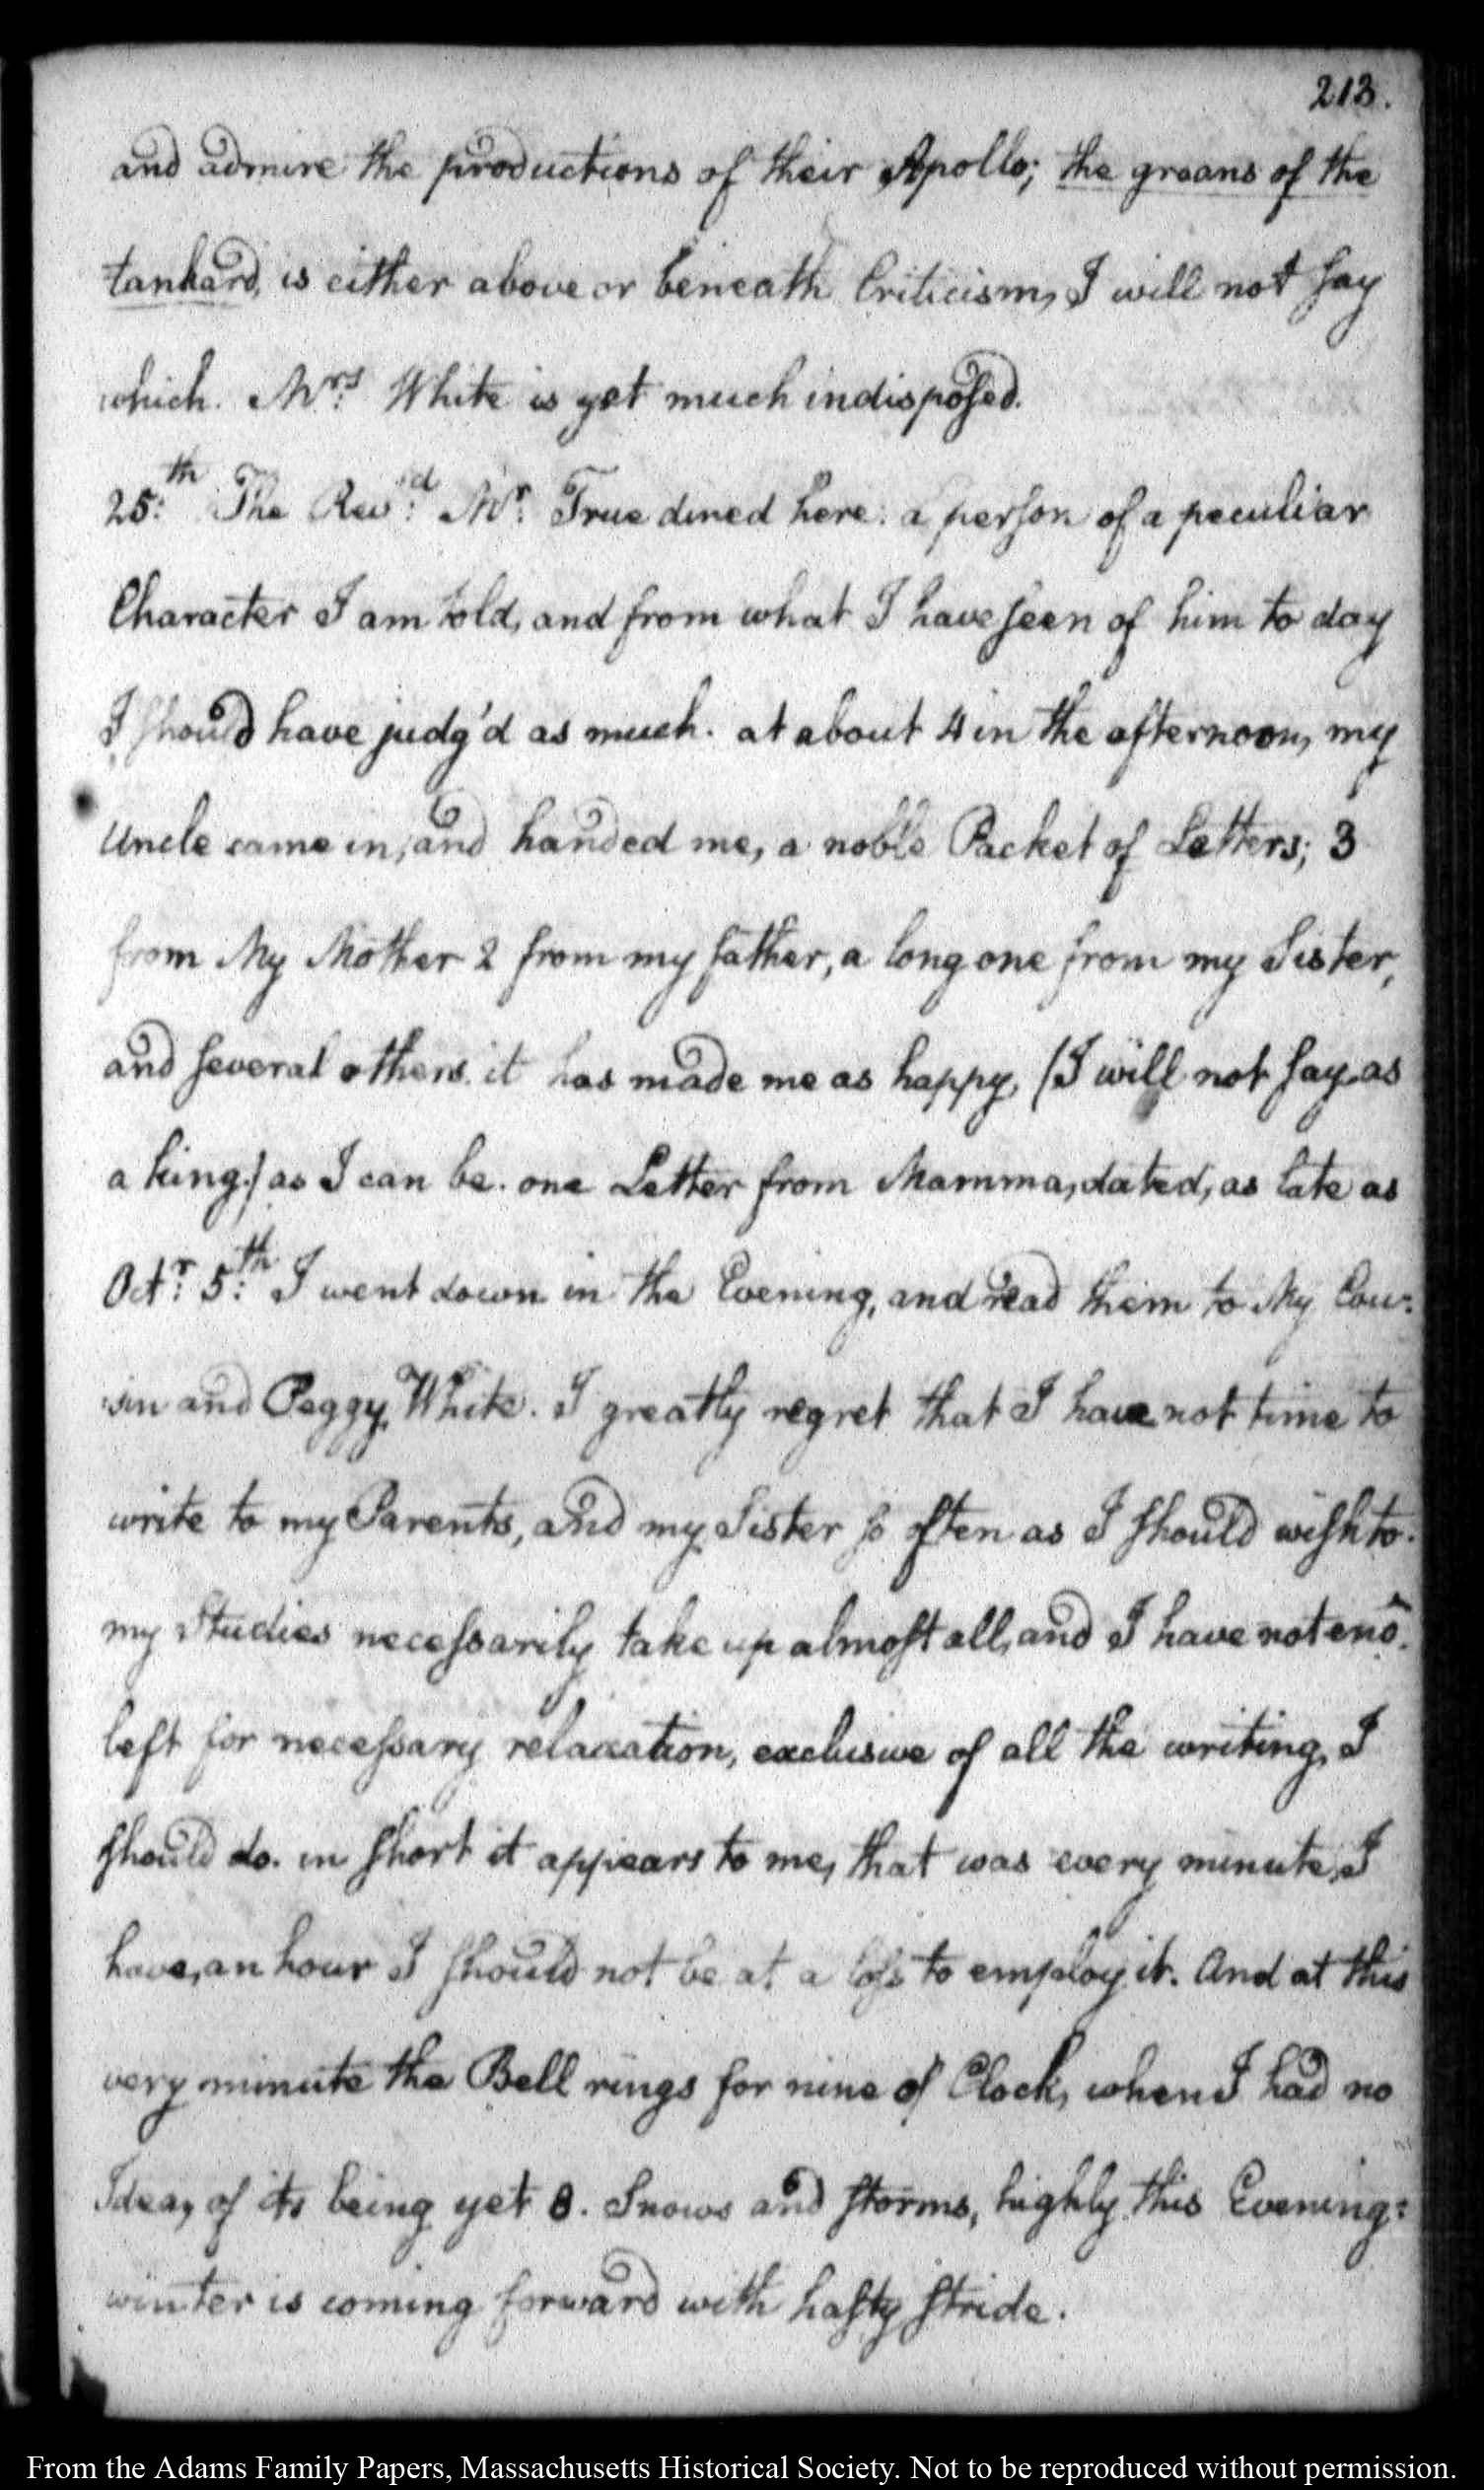 213.
and admire the productions of their Apollo; the groans of the
tankard, is either above or beneath Criticism, I will not say
which. Mrs: White is yet much indisposed.
25:th The Revd: Mr: True dined here: a person of a peculiar
Character I am told, and from what I have seen of him to day
I should have judg'd as much. at about 4 in the afternoon, my
Uncle came in, and handed me, a noble Packet of Letters; 3
from My Mother 2 from my father, a long one from my Sister,
and several others. it has made me as happy, (I will not say as
a king.) as I can be. one Letter from Mamma, dated, as late as
Octr: 5:th I went down in the Evening, and read them to My Cou:
:sin and Peggy White. I greatly regret that I have not time to
write to my Parents, and my Sister so often as I should wish to.
my Studies necessarily take up almost all, and I have not eno'.
left for necessary relaxation, exclusive of all the writing, I
should do. in short it appears to me, that was every minute, I
have, an hour I should not be at a loss to employ it. And at this
very minute the Bell rings for nine of Clock, when I had no
Idea, of its being yet 8. Snows and storms, highly this Evening:
winter is coming forward with hasty stride.
From the Adams Family Papers, Massachusetts Historical Society. Not to be reproduced without permission.